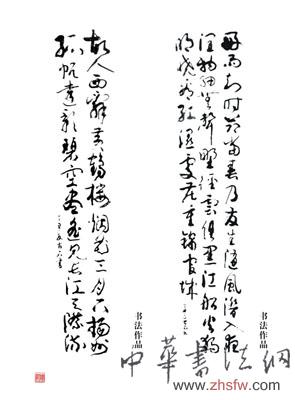 好雨知时节当春乃发生随风潜入夜
润物细无声野径云俱黑江船火独
明晓看红湿处花重锦官城
书法作品
故人西辞黄鹤楼烟花三月下扬州
孤帆远影碧空尽唯见长江天际流
书法作品
中华书法网
www.zhsfw.com